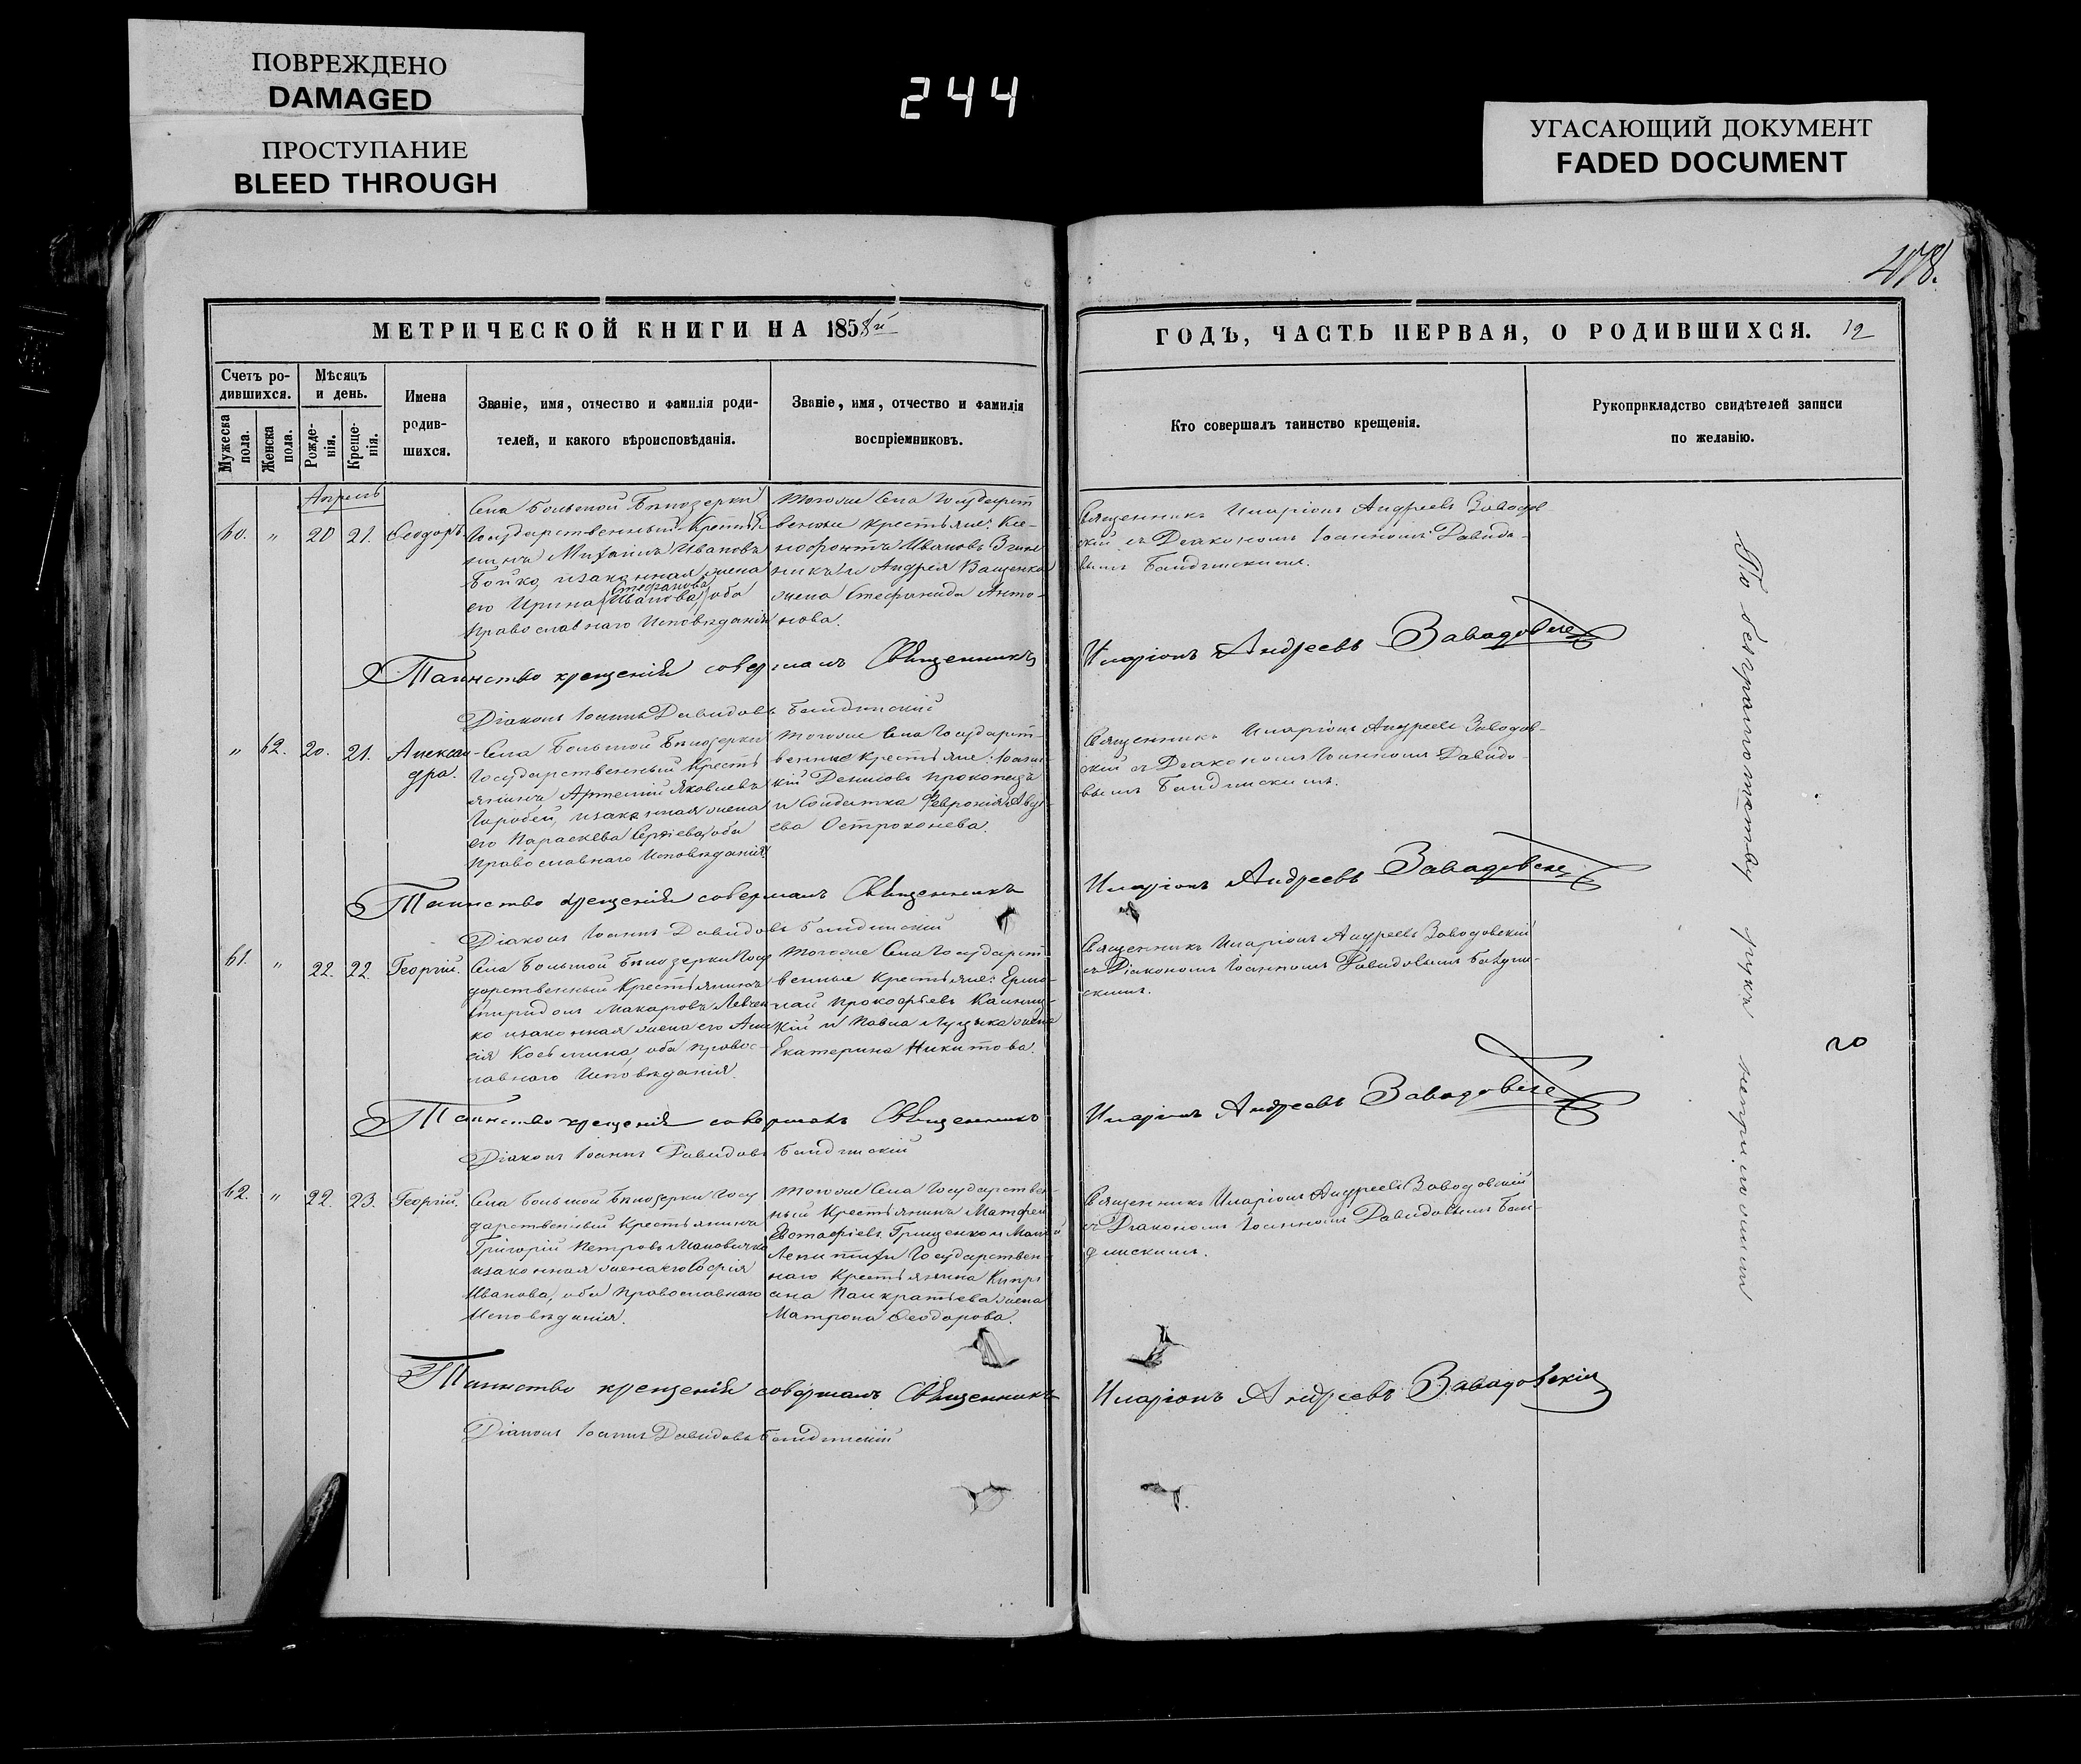 ПОВРЕЖДЕНО
DAMAGED
ПРОСТУПАНИЕ
BLEED THROUGH
244
УГАСАЮЩИЙ ДОКУМЕНТ
FADED DOCUMENT
478.
МЕТРИЧЕСКОЙ КНИГИ НА 1858й
ГОДЪ, ЧАСТЬ ПЕРВАЯ, О РОДИВШИХСЯ. 12
Счетъ ро-
дившихся.
Мужеска пола.
Женска пола.
Мѣсяцъ
и день.
Рожде-
нія.
Креще-
нія.
Имена
родив-
шихся.
Званіе, имя, отчество и фамилія роди-
телей, и какого вѣроисповѣданія.
Званіе, имя, отчество и фамилія
воспріемниковъ.
Кто совершалъ таинство крещенія.
Рукоприкладство свидѣтелей записи
по желанію.
Апрель
60. " 20 21. Ѳеодоръ.
Села Большой Бѣлозерки
Государственный Крестья-
нинъ Михаилъ Ивановъ
Бойко, изаконная жена
его Ирина Стефанова
(Иванова,) оба
Православнаго Исповѣданія
Тогоже Села Государст
венные Крестьяне: Ксе-
нофонтъ Ивановъ
никъ и Андрея Ващенко
жена Стефанида Анто-
нова.
Священникъ Иларіонъ Андреевъ Заводов
скій съ Діакономъ Іоанномъ Давидо-
вымъ
Таинство крещенія совершалъ Священникъ
Иларіонъ Андреевъ Завадовскій
Діаконъ Іоаннъ Давидовъ
" 62. 20. 21. Алексан-
дра.
Села Большой Бѣлозерки
Государственный Кресть
янинъ Артемій Яковлевъ
Горобей, изаконная жена
его Параскева Сергіева, оба
Православнаго Исповѣданія.
Тогоже Села Государст-
венные Крестьяне:
кій Денисовъ Прокопецъ
и Солдатка Февронія
ева Остроконева.
Священникъ Иларіонъ Андреевъ Заводов-
скій съ Діакономъ Іоанномъ Давидо-
вымъ
Таинство крещенія совершалъ Священникъ
Иларіонъ Андреевъ Завадовскій
Діаконъ Іоаннъ Давидовъ
61. " 22. 22. Георгій.
Села Большой Бѣлозерки Госу
дарственный Крестьянинъ
Спиридонъ Макаровъ Левчен
ко изаконная жена его Ана
сія Косьмина, оба Правос-
лавнаго Исповѣданія.
Тогоже Села Государст
венные Крестьяне: Ермо-
лай Прокофьевъ Калниц-
кій и Павла Лузыка жена
Екатерина Никитова.
Священникъ Иларіонъ Андреевъ Заводовскій
съ Діакономъ Іоанномъ Давидовымъ
скимъ.
Таинство крещенія совершалъ Священникъ
Иларіонъ Андреевъ Завадовскій
Діаконъ Іоаннъ Давидовъ
62. " 22. 23. Георгій.
Села Большой Бѣлозерки Госу
дарственный Крестьянинъ
Григорій Петровъ Маковичко
изаконная жена его Софія
Иванова, оба Православнаго
Исповѣданія.
Тогоже Села Государствен-
ный Крестьянинъ Матфей
Евстафіевъ Грищенко и Малой
Лепитихи Государствен-
наго Крестьянина Кипрі
ана Панкратьева жена
Матрона Ѳеодорова.
Священникъ Иларіонъ Андреевъ Заводовскій
съ Діакономъ Іоанномъ Давидовымъ
Таинство крещенія совершалъ Священникъ
Иларіонъ Андреевъ Завадовскій
Діаконъ Іоаннъ Давидовъ
По безграмотству рукъ неприложили
20